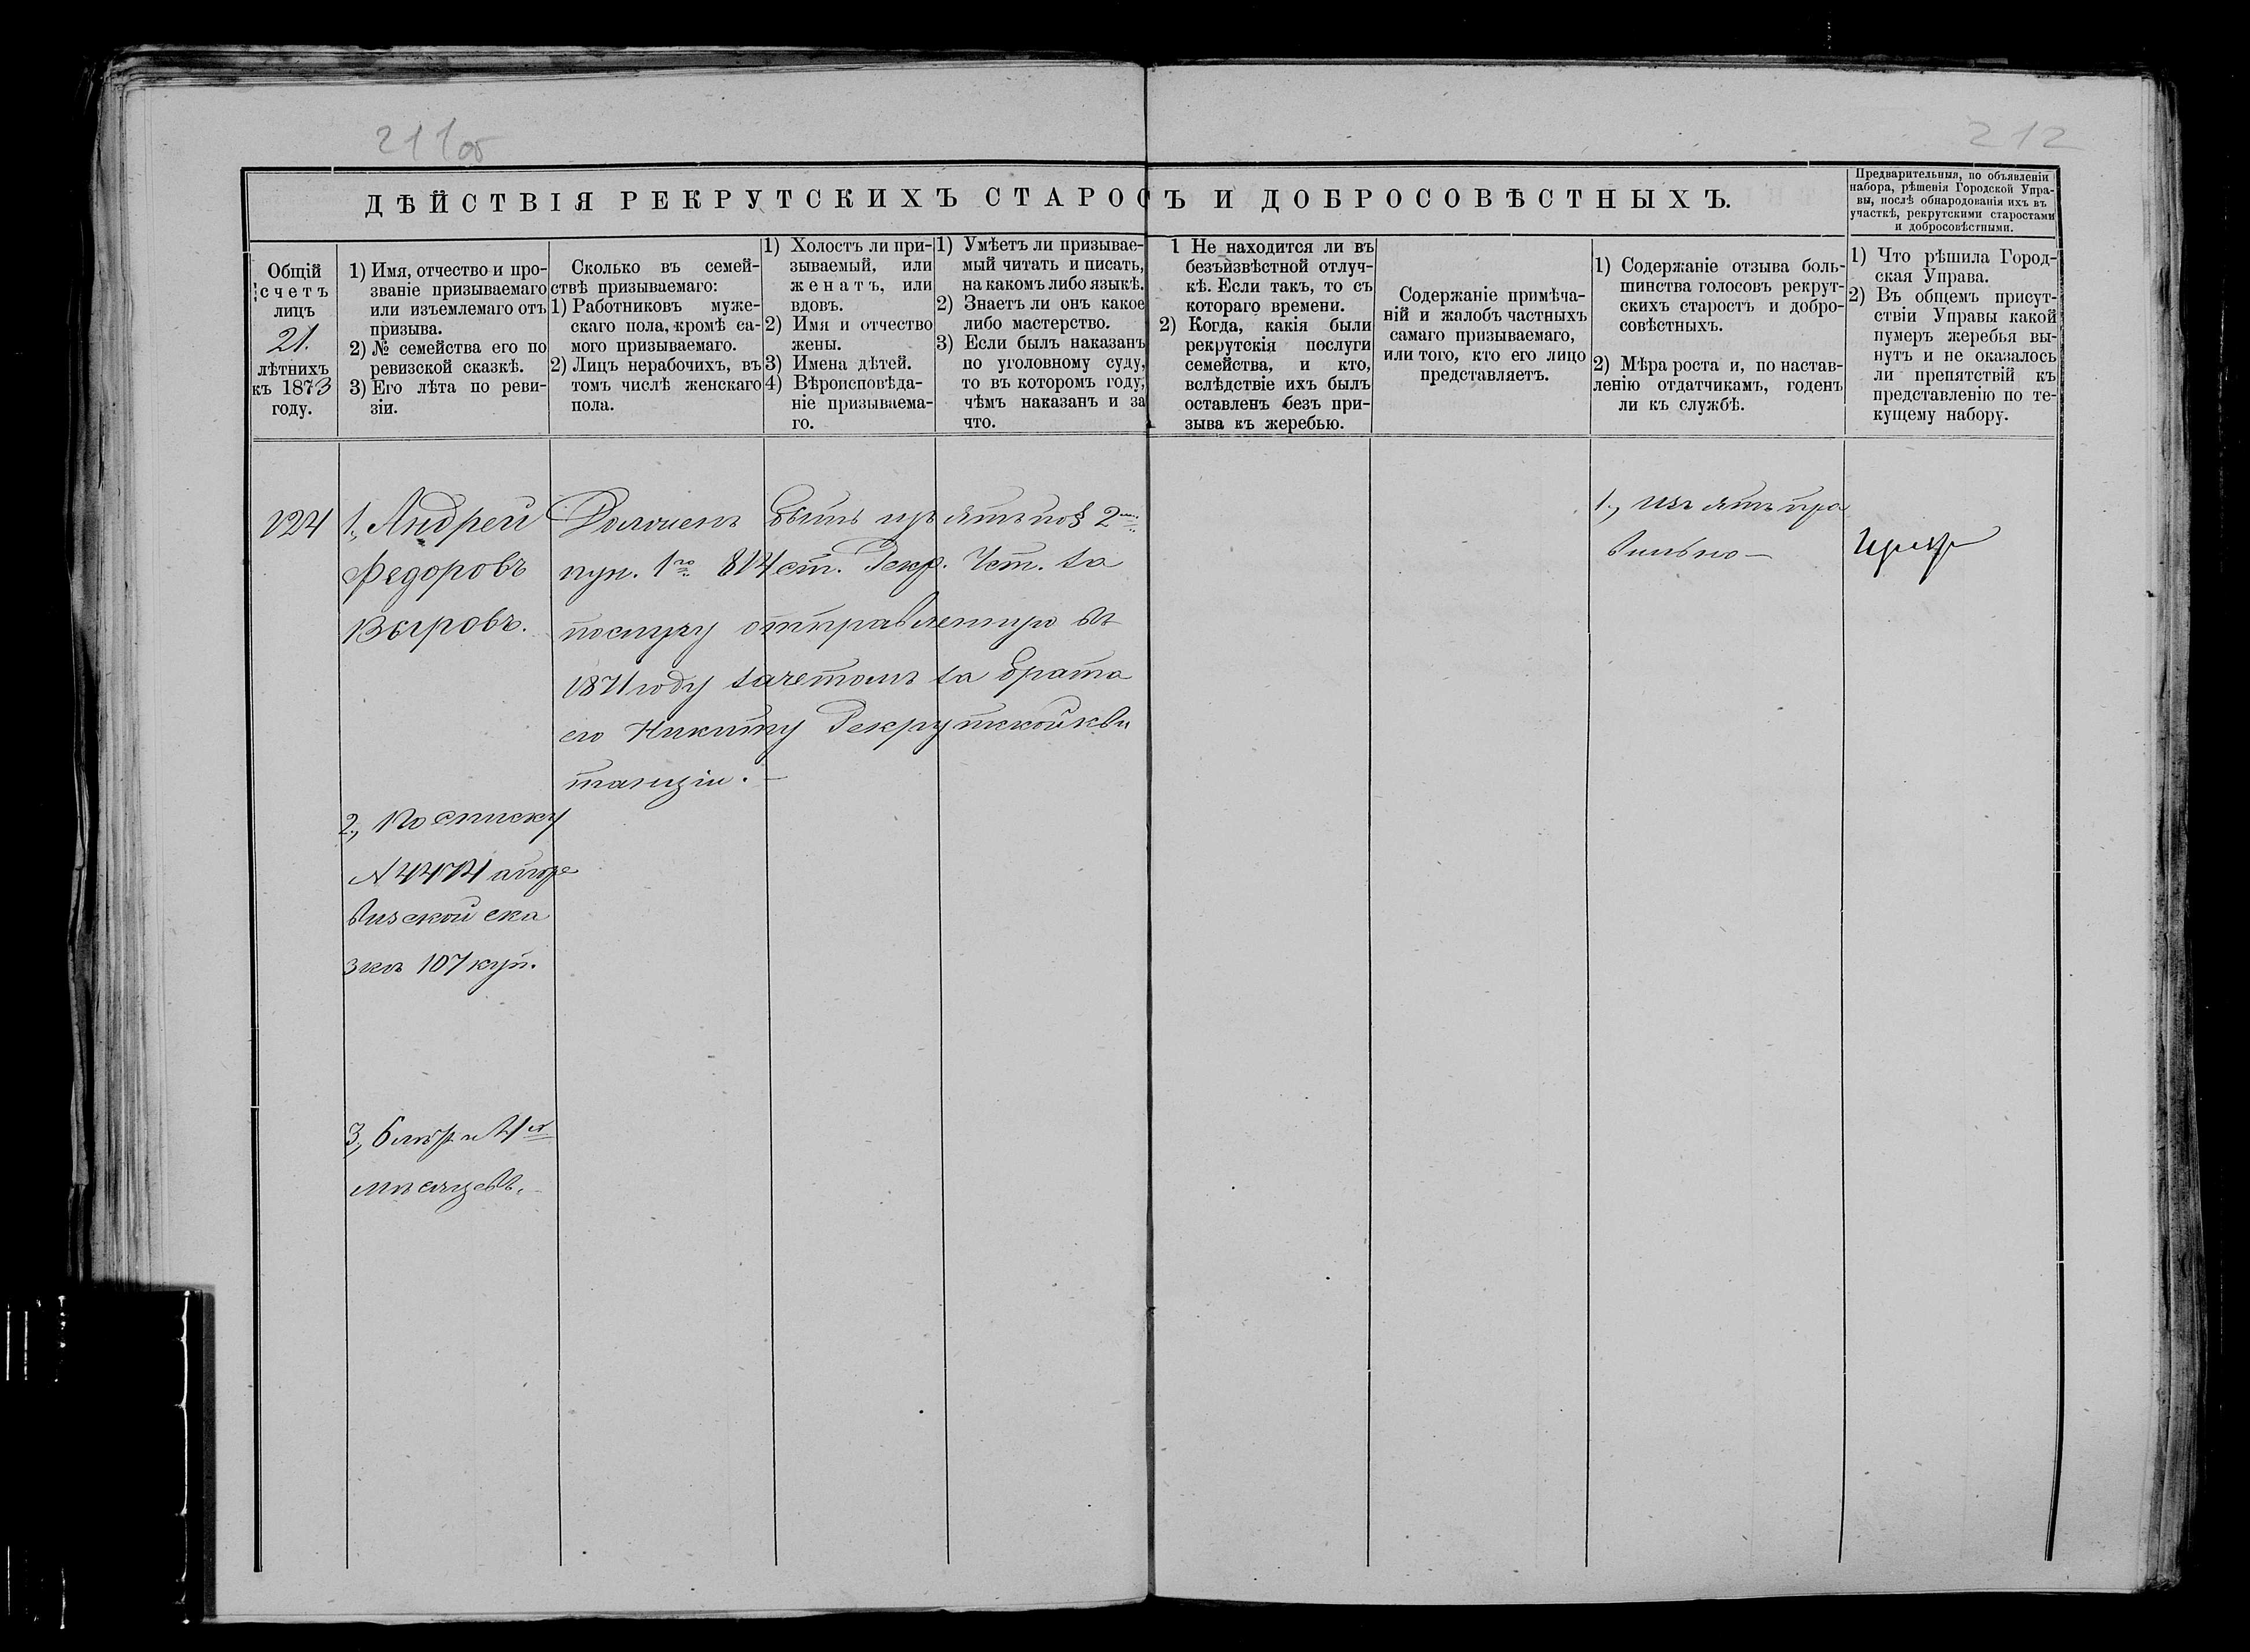 211об
212
ДѢЙСТВІЯ РЕКРУТСКИХЪ СТАРОСЪ И ДОБРОСОВѢСТНЫХЪ.
Предварительныя, по объявленіи
набора, рѣшенія Городской Упра-
вы, послѣ обнародованія ихъ въ
участкѣ, рекрутскими старостами
и добросовѣстными.
Общій
счетъ
лицъ
21.
лѣтнихъ
къ 1873
году.
1) Имя, отчество и про-
званіе призываемаго
или изъемлемаго отъ
призыва.
2) № семейства его по
ревизской сказкѣ.
3) Его лѣта по реви-
зіи.
Сколько въ семей-
ствѣ призываемаго:
1) Работниковъ муже-
скаго пола, кромѣ са-
мого призываемаго.
2) Лицъ нерабочихъ, въ
томъ числѣ женскаго
пола.
1) Холостъ ли при-
зываемый, или
женатъ, или
вдовъ.
2) Имя и отчество
жены.
3) Имена дѣтей.
4) Вѣроисповѣда-
ніе призываема-
го.
1) Умѣетъ ли призывае-
мый читать и писать,
на какомъ либо языкѣ.
2) Знаетъ ли онъ какое
либо мастерство.
3) Если былъ наказанъ
по уголовному суду,
то въ которомъ году,
чѣмъ наказанъ и за
что.
1 Не находится ли въ
безъизвѣстной отлуч-
кѣ. Если такъ, то съ
котораго времени.
2) Когда, какія были
рекрутскія послуги
семейства, и кто,
вслѣдствіе ихъ былъ
оставленъ безъ при-
зыва къ жеребью.
Содержаніе примѣча-
ній и жалобъ частныхъ
самаго призываемаго,
или того, кто его лицо
представляетъ.
1) Содержаніе отзыва боль-
шинства голосовъ рекрут-
скихъ старостъ и добро-
совѣстныхъ.
2) Мѣра роста и, по настав-
ленію отдатчикамъ, годенъ
ли къ службѣ.
1) Что рѣшила Город-
ская Управа.
2) Въ общемъ присут-
ствіи Управы какой
нумеръ жеребья вы-
нутъ и не оказалось
ли препятствій къ
представленію по те-
кущему набору.
124
1., Андрей
Федоровъ
Выровъ.
Долженъ быть изъятъ по § 2му
пун. 1го 814 ст. Рекр. Уст. за
послугу отправленную въ
1871 году зачетомъ за брата
его Никиту Рекрутской кви
танціи. —
2., По списку
№ 4474 а по ре
визской ска
зкѣ 107 куп.
3., 6 лѣтъ и 4х
мѣсяцевъ.
1., Изъятъ пра
вильно —